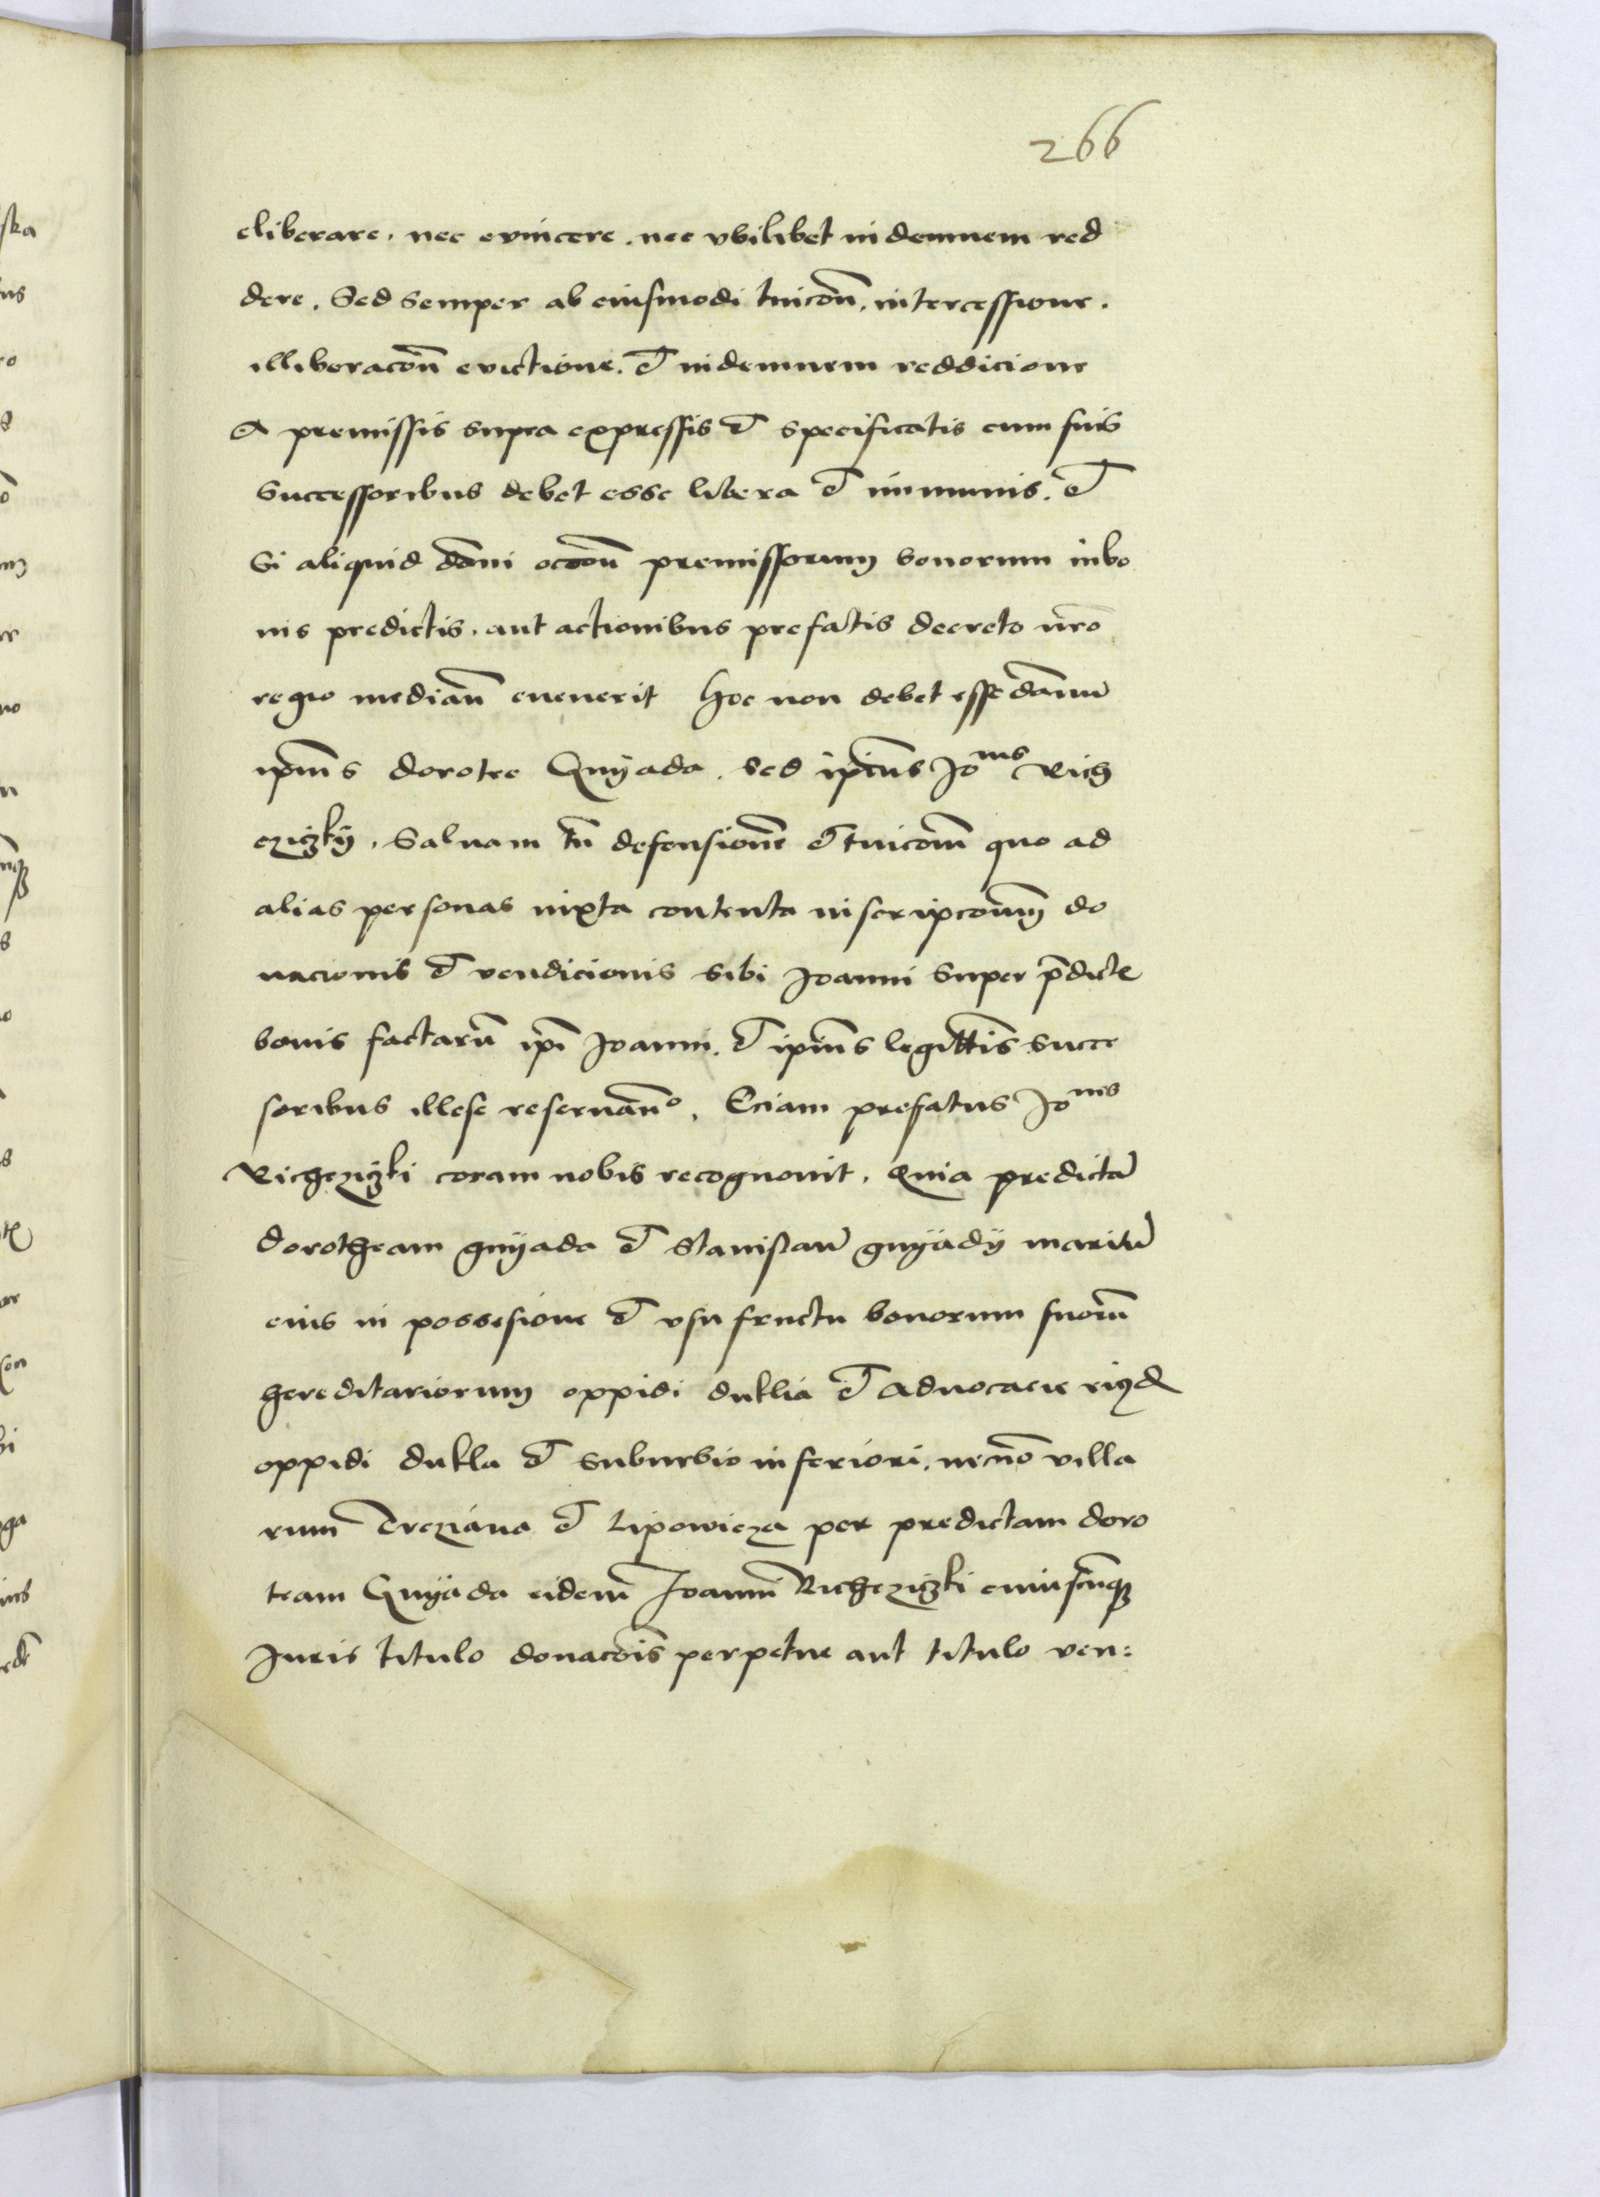 266
eliberare. nec evincere. nec vbilibet indemnem red
dere. Sed semper ab eiusmodi tuicōn. intercessione.
illiberacōn evictione. et indemnem reddicione
A premissis supra expressis et specificatis cum suis
Successoribus debet esse libera et immunis. et
Si aliquid dāni occōn premissorum bonorum inbo
nis predictis. aut actionibus prefatis decreto nrō
regio mediañ euenerit hoc non debet esse dānū
ipius dorotee Gnÿada. sed ipius Joīs Rich
cziczkÿ. Saluam tn̄ defensionē et tuicōm quo ad
alias personas iuxta contenta inscripcōnum do
nacionis et vendicionis sibi Joanni super p̄dictē
bonis factarū ipī Joanni. et ipius legittīs succe
soribus illese reseruānº. Eciam prefatus Joēs
Richcziczki coram nobis recognouit. Quia predictā
dorotheam gnÿada et Stanislaū gnÿadÿ maritū
eius in possesione et vsu fructu bonorum suorū
hereditariorum oppidi duklia et aduocacie eiusd
oppidi dukla et suburbio inferiori. necnō villa
rum Trcziana et Lipowicza per predictam doro
team Gnÿada eidem Joannī Richcziczki cuiuscūq3
Juris titulo donacōis perpetue aut titulo ven: